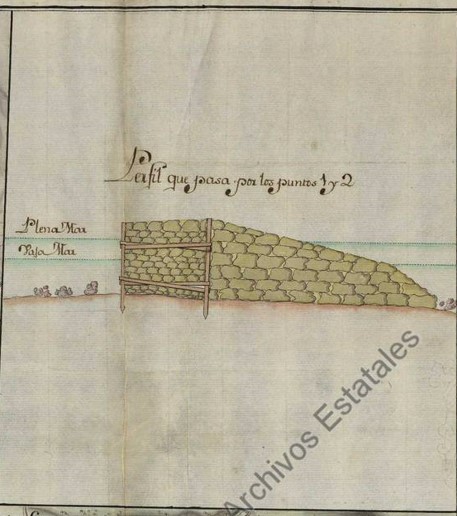 Perfil que pasa por los puntos 1 y 2
Plena Mar
Vaja Mar
Archivos Estatales